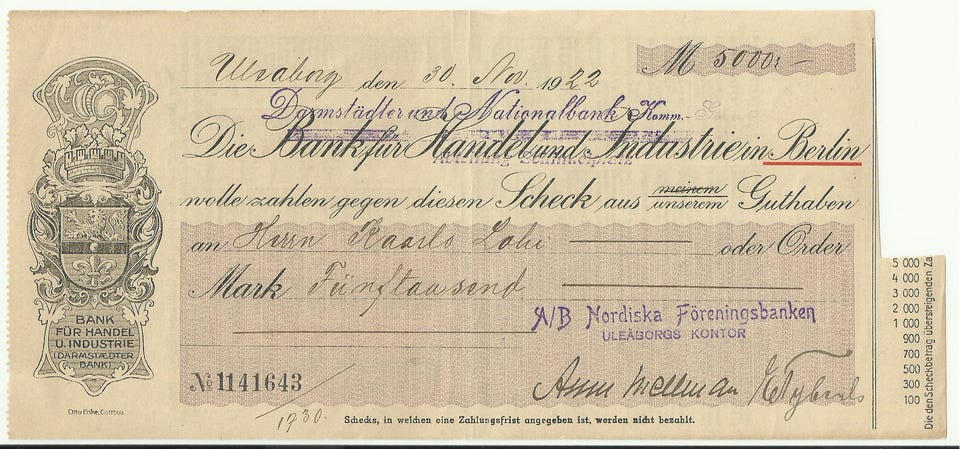 M 5000:-
Uleåborg den 30. Nov. 1922
Darmstädter und Nationalbank Komm.-
Die Bank für Handel und Industrie in Berlin
Abteilung
wolle zahlen gegen diesen Scheck aus meinem Guthaben
unserem
an Herrn Kaarlo Lohi oder Order
Mark Fünftausend
A/B Nordiska Föreningsbanken
ULEÅBORGS KONTOR
BANK
FÜR HANDEL
U. INDUSTRIE
(DARMSTÆDTER
BANK)
No 1141643
1730.
Otto Enke, Cottbus
Schecks, in welchen eine Zahlungsfrist angegeben ist, werden nicht bezahlt.
5 000
4 000
3 000
2 000
1 000
900
700
500
300
100
Die den Scheckbetrag übersteigenden Za